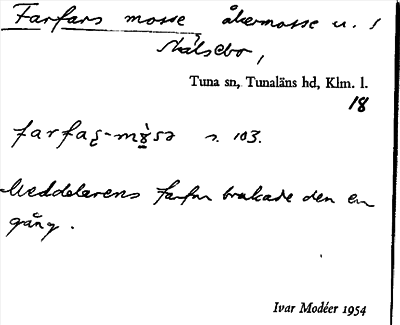 Farfars mosse åkermosse u. f
Skälsebo,
Tuna sn, Tunaläns hd, Klm. l.
18
farfaʂ-mò̤sə s. 103.
Meddelarens farfar brukade den en
gång.
Ivar Modéer 1954